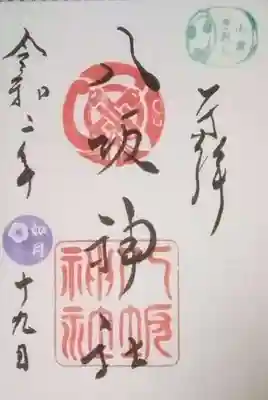 奉拝
八坂神社
八坂神社
令和二年
如月
十九日